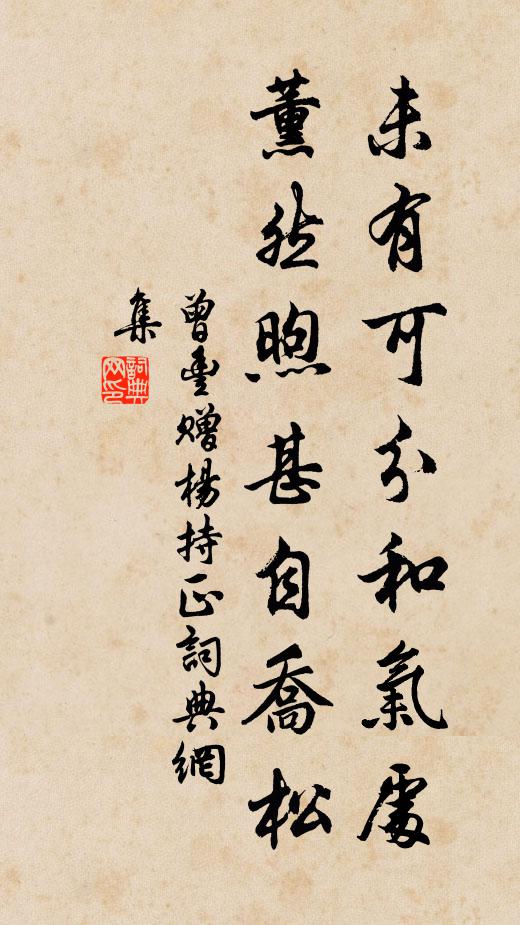 未有可分和氣處
薰然煦甚自喬松
曾豐贈楊持正詞典網
集
詞典
网印